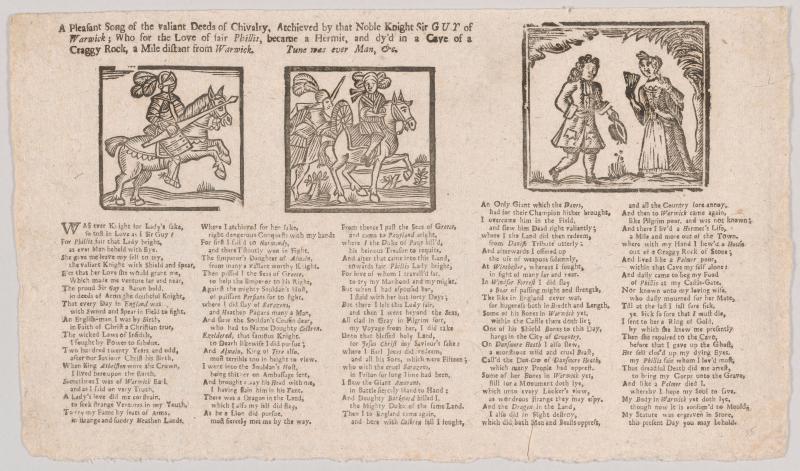 A Pleasant Song of the valiant Deeds of Chivalry, Atchieved by that Noble Knight Sir GUY of
Warwick; Who for the Love of fair Phillis, became a Hermit, and dy'd in a Cave of a
Craggy Rock, a Mile distant from Warwick. Tune was ever Man, &c.
WAS ever Knight for Lady's sake,
so tost in Love as I Sir Guy?
For Phillis fair that Lady bright,
as ever Man beheld with Eye.
She gave me leave my self to try,
the valiant Knight with Shield and Spear,
E're that her Love she would grant me,
Which made me venture far and near,
The proud Sir Guy a Baron bold,
in deeds of Arms the doubtful Knight,
That every Day in England was,
with Sword and Spear in Field to fight.
An English-man I was by Birth,
in Faith of Christ a Christian true,
The wicked Laws of Infidels,
I sought by Power to subdue.
Two hundred twenty Years and odd,
after our Saviour Christ his Birth,
When King wore the Crown,
I lived here upon the Earth.
Sometimes I was of Warwick Earl,
and as I said on very Truth,
A Lady's love did me constrain,
to seek strange Ventures in my Youth,
To try my Fame by feats of Arms,
in strange and sundry Heathen Lands,
Where I atchieved for her sake,
right dangerous Conquests with my hands
For first I sail'd to Normandy,
and there I stoutly won in Fight,
The Emperor's Daughter of
from many a valiant worthy Knight.
Then passed I the Seas of Greece,
to help the Emperor to his Right,
Against the mighty Souldan's Host,
of puissant Persians for to fight.
where I did slay of Sarazens,
and Heathen Pagans many a Man,
And slew the Souldan's Cousin dear,
who had to Name Doughty Colbron.
Ezeldered, that famous Knight,
to Death likewise I did pursue;
And King of Tyre also,
most terrible too in sight to view,
I went into the Souldan's Host,
being thither on Ambassage sent,
And brought away his Head with me,
I having slain him in his Tent.
There was a Dragon in the Land,
which I also my self did slay,
As he a Lion did pursue,
most fiercely met me by the way.
From thence I past the Seas of Greece,
and came to Pavyland aright,
where I the Duke of Pavy kill'd,
his heinous Treason to requite,
And after that came into this Land,
towards fair Phillis Lady bright,
For love of whom I travell'd far,
to try my Manhood and my might.
But when I had espoused her,
I staid with her but forty Days;
But there I left this Lady fair,
and then I went beyond the Seas,
All clad in Gray in Pilgrim sort,
my Voyage from her, I did take
Unto that blessed holy Land,
for Jesus Christ my Saviour's sake:
where I Earl Jonas did redeem,
and all his Sons, which were Fifteen;
who with the cruel Sarazens,
in Prison for long time had been,
I slew the Giant Amarant,
in Battle fiercely Hand to Hand;
And Doughty Barknard killed I,
the Mighty Duke of the same Land.
Then I to England came again,
and here with Colbron fell I fought,
An Ugly Giant which the Danes,
had for their Champion hither brought,
I overcame him in the Field,
and slew him Dead right valiantly;
where I the Land did then redeem,
from Danish Tribute utterly;
And afterwards I offered up
the use of weapons solemnly,
At Winchester, whereas I fought,
in sight of many far and near.
In Winsor Forrest I did slay
a Boar of passing might and strength,
The like in England never was,
for hugeness both in Bredth and Length,
Some of his Bones in Warwick yet,
within the Castle there doth lie;
One of his Shield Bones to this Day,
hangs in the City of Coventry.
On Dunsmore Heath I also slew,
a monstrous wild and cruel Beast,
Call'd the Dun-Cow of Dunsmore Heath,
which many People had opprest.
Some of her Bones in Warwick yet,
still for a Monument doth lye,
which unto every Looker's view,
as wondrous strange they may espy.
And the Dragon in the Land,
I also did in Fight destroy,
which did both Men and Beasts oppress,
and all the Country sore annoy,
And then to Warwick came again,
like Pilgrim poor, and was not known;
And there I liv'd a Hermit's Life,
a Mile and more out of the Town.
where with my Hand I hew'd a House
out of a Craggy Rock of Stone;
And lived like a Palmer poor,
within that Cave my self alone:
And daily came to beg my Food
of Phillis at my Castle-Gate,
Not known unto my loving wife,
who daily mourned for her Mate,
Till at the last I fell sore sick,
ye sick so sore that I must die,
I sent to her a Ring of Gold,
by which she knew me presently
Then she repaired to the Cave,
before that I gave up the Ghost,
Her self clos'd up my dying Eyes,
my Phillis fair whom I lov'd most,
Thus dreadful Death did me arrest,
to bring my Corps unto the Grave,
And like a Palmer died I,
whereby I hope my Soul to save.
My Body in Warwick yet doth lye,
though now it is consum'd to Mould,
My Stature was engraven in Stone,
this present Day you may behold.